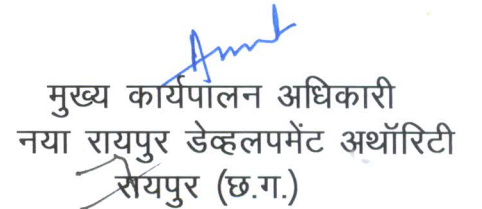 मुख्य कार्यपालन अधिकारी
नया रायपुर डेव्हलपमेंट अथॉरिटी
रायपुर (छ.ग.)